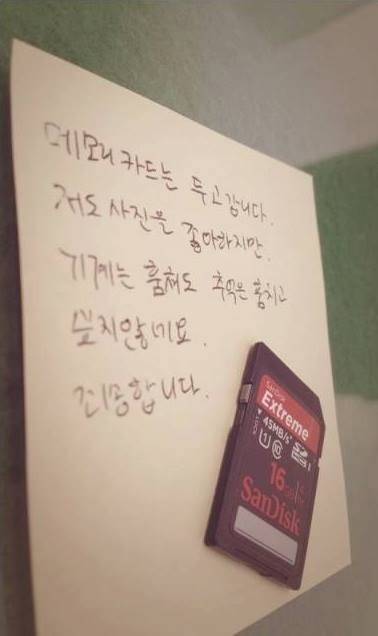 메모리 카드는 두고갑니다.
저도 사진을 좋아하지만.
기계는 훔쳐도 추억은 훔치고
싶지않네요.
죄송합니다.
SanDisk
Extreme
45MB/s
SDHC I
U1 10
16GB
SanDisk